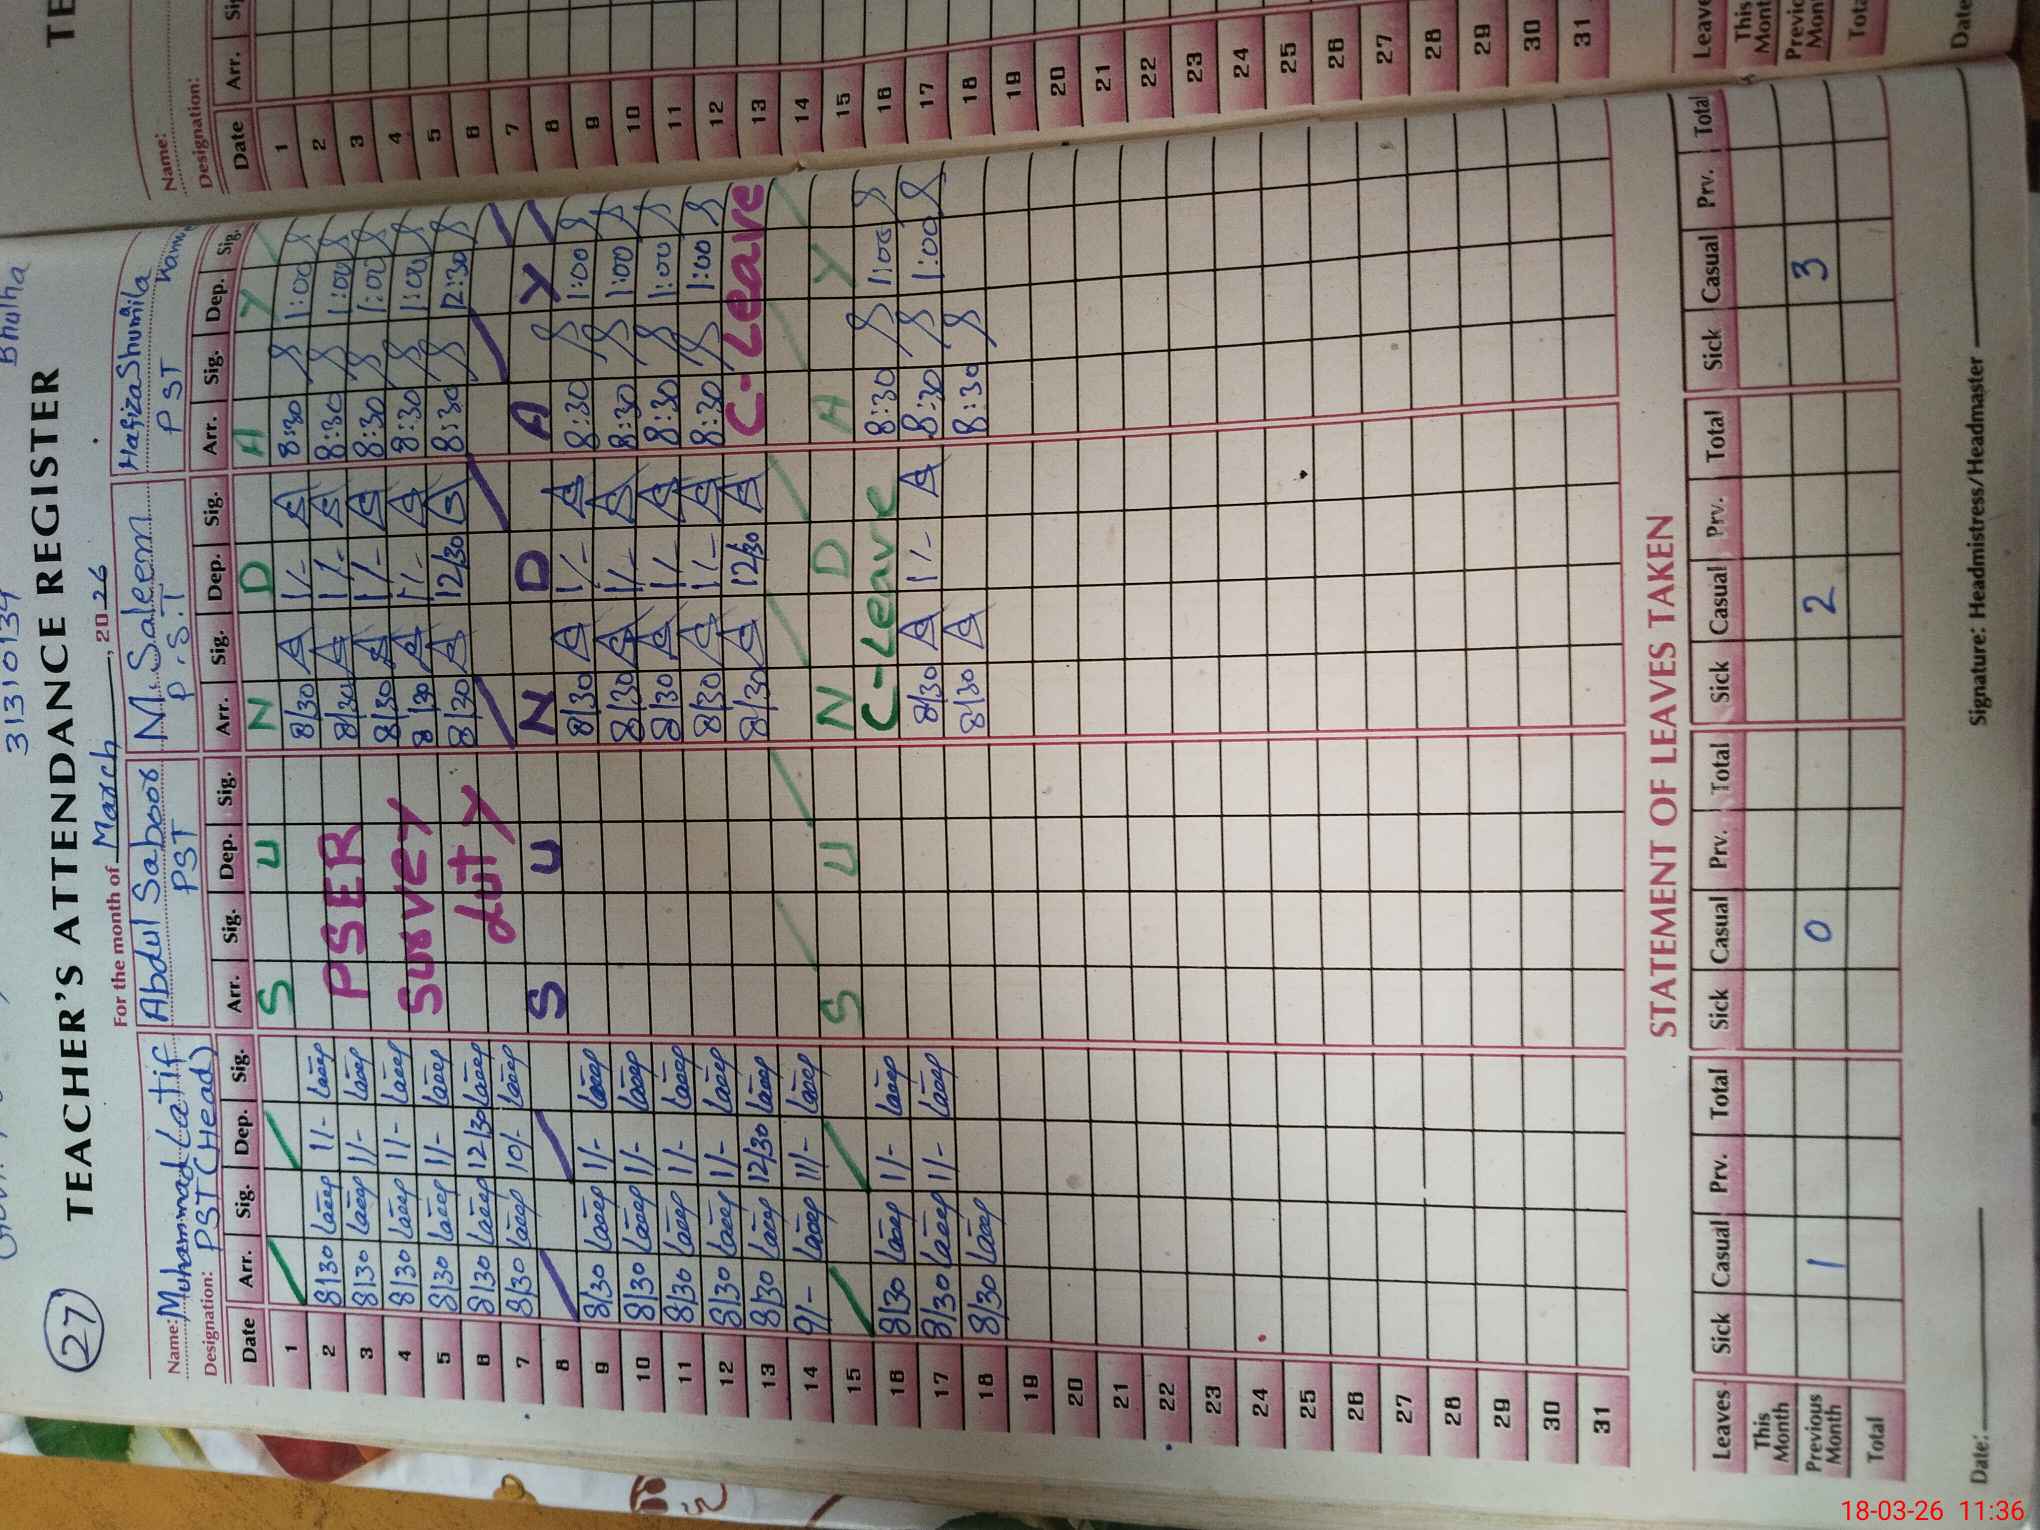 31310134
Bhulha
27
TEACHER'S ATTENDANCE REGISTER
For the month of March, 2026
Name: Muhammad Latif Abdul Saboor M. Saleem Hafiza Shumila Kanwal
Designation: PST (Head) PST P.S.T PST
Date Arr. Sig. Dep. Sig. Arr. Sig. Dep. Sig. Arr. Sig. Dep. Sig. Arr. Sig. Dep. Sig.
1 S U N D A Y
2 8/30 1/- 8/30 1/- 8:30 1:00
3 8/30 1/- PSER 8/30 1/- 8:30 1:00
4 8/30 1/- 8/30 1/- 8:30 1:00
5 8/30 1/- Survey 8/30 1/- 8:30 1:00
6 8/30 12/30 duty 8/30 12/30 8:30 12:30
7 8/30 10/-
8 S U N D A Y
9 8/30 1/- 8/30 1/- 8:30 1:00
10 8/30 1/- 8/30 1/- 8:30 1:00
11 8/30 1/- 8/30 1/- 8:30 1:00
12 8/30 1/- 8/30 1/- 8:30 1:00
13 8/30 12/30 8/30 12/30 C-Leave
14 9/- 11/-
15 S U N D A Y
16 8/30 1/- C-Leave 8:30 1:00
17 8/30 1/- 8/30 1/- 8:30 1:00
18 8/30 8/30 8:30
19
20
21
22
23
24
25
26
27
28
29
30
31
STATEMENT OF LEAVES TAKEN
Leaves Sick Casual Prv. Total Sick Casual Prv. Total Sick Casual Prv. Total Sick Casual Prv. Total
This Month
Previous Month 1 0 2 3
Total
Date: Signature: Headmistress/Headmaster
TE
Name:
Designation:
Date Arr.
1
2
3
4
5
6
7
8
9
10
11
12
13
14
15
16
17
18
19
20
21
22
23
24
25
26
27
28
29
30
31
Leave
This
Mont
Previo
Mon
Tota
Date
18-03-26 11:36